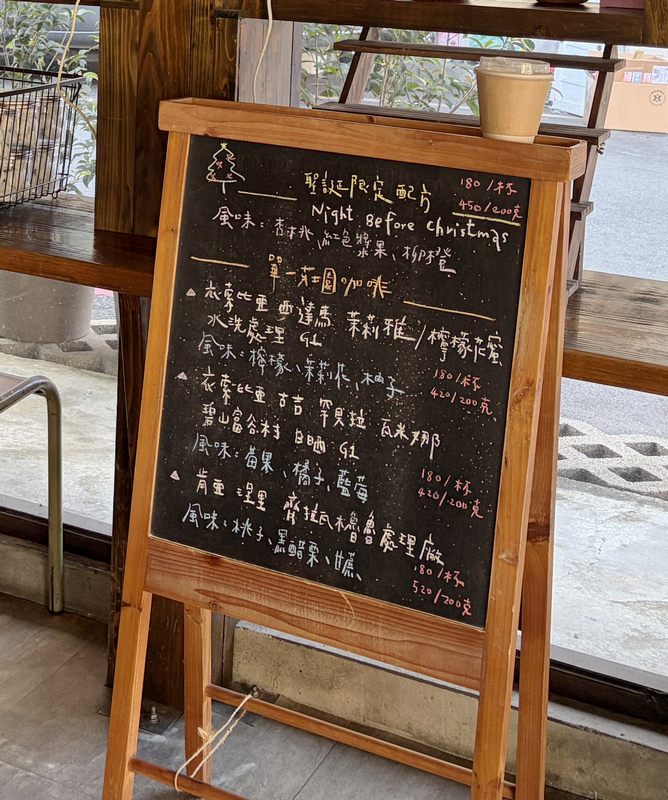 聖誕限定配方
180/杯
450/200克
Night Before Christmas
風味：杏桃、紅色漿果、柳橙
單一莊園咖啡
衣索比亞 西達馬 茉莉雅/檸檬花蜜
水洗處理 G1
風味：檸檬、茉莉花、柚子
180/杯
420/200克
衣索比亞 吉吉 罕貝拉 瓦米娜
碧山富谷村 日晒 G1
風味：莓果、橘子、藍莓
180/杯
420/200克
肯亞 涅里 齊拉瓦檜魯處理廠
風味：桃子、黑醋栗、甘蔗
180/杯
520/200克